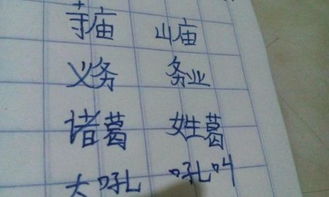 寺庙 山庙
义务 务业
诸葛 姓葛
大吼 吼叫